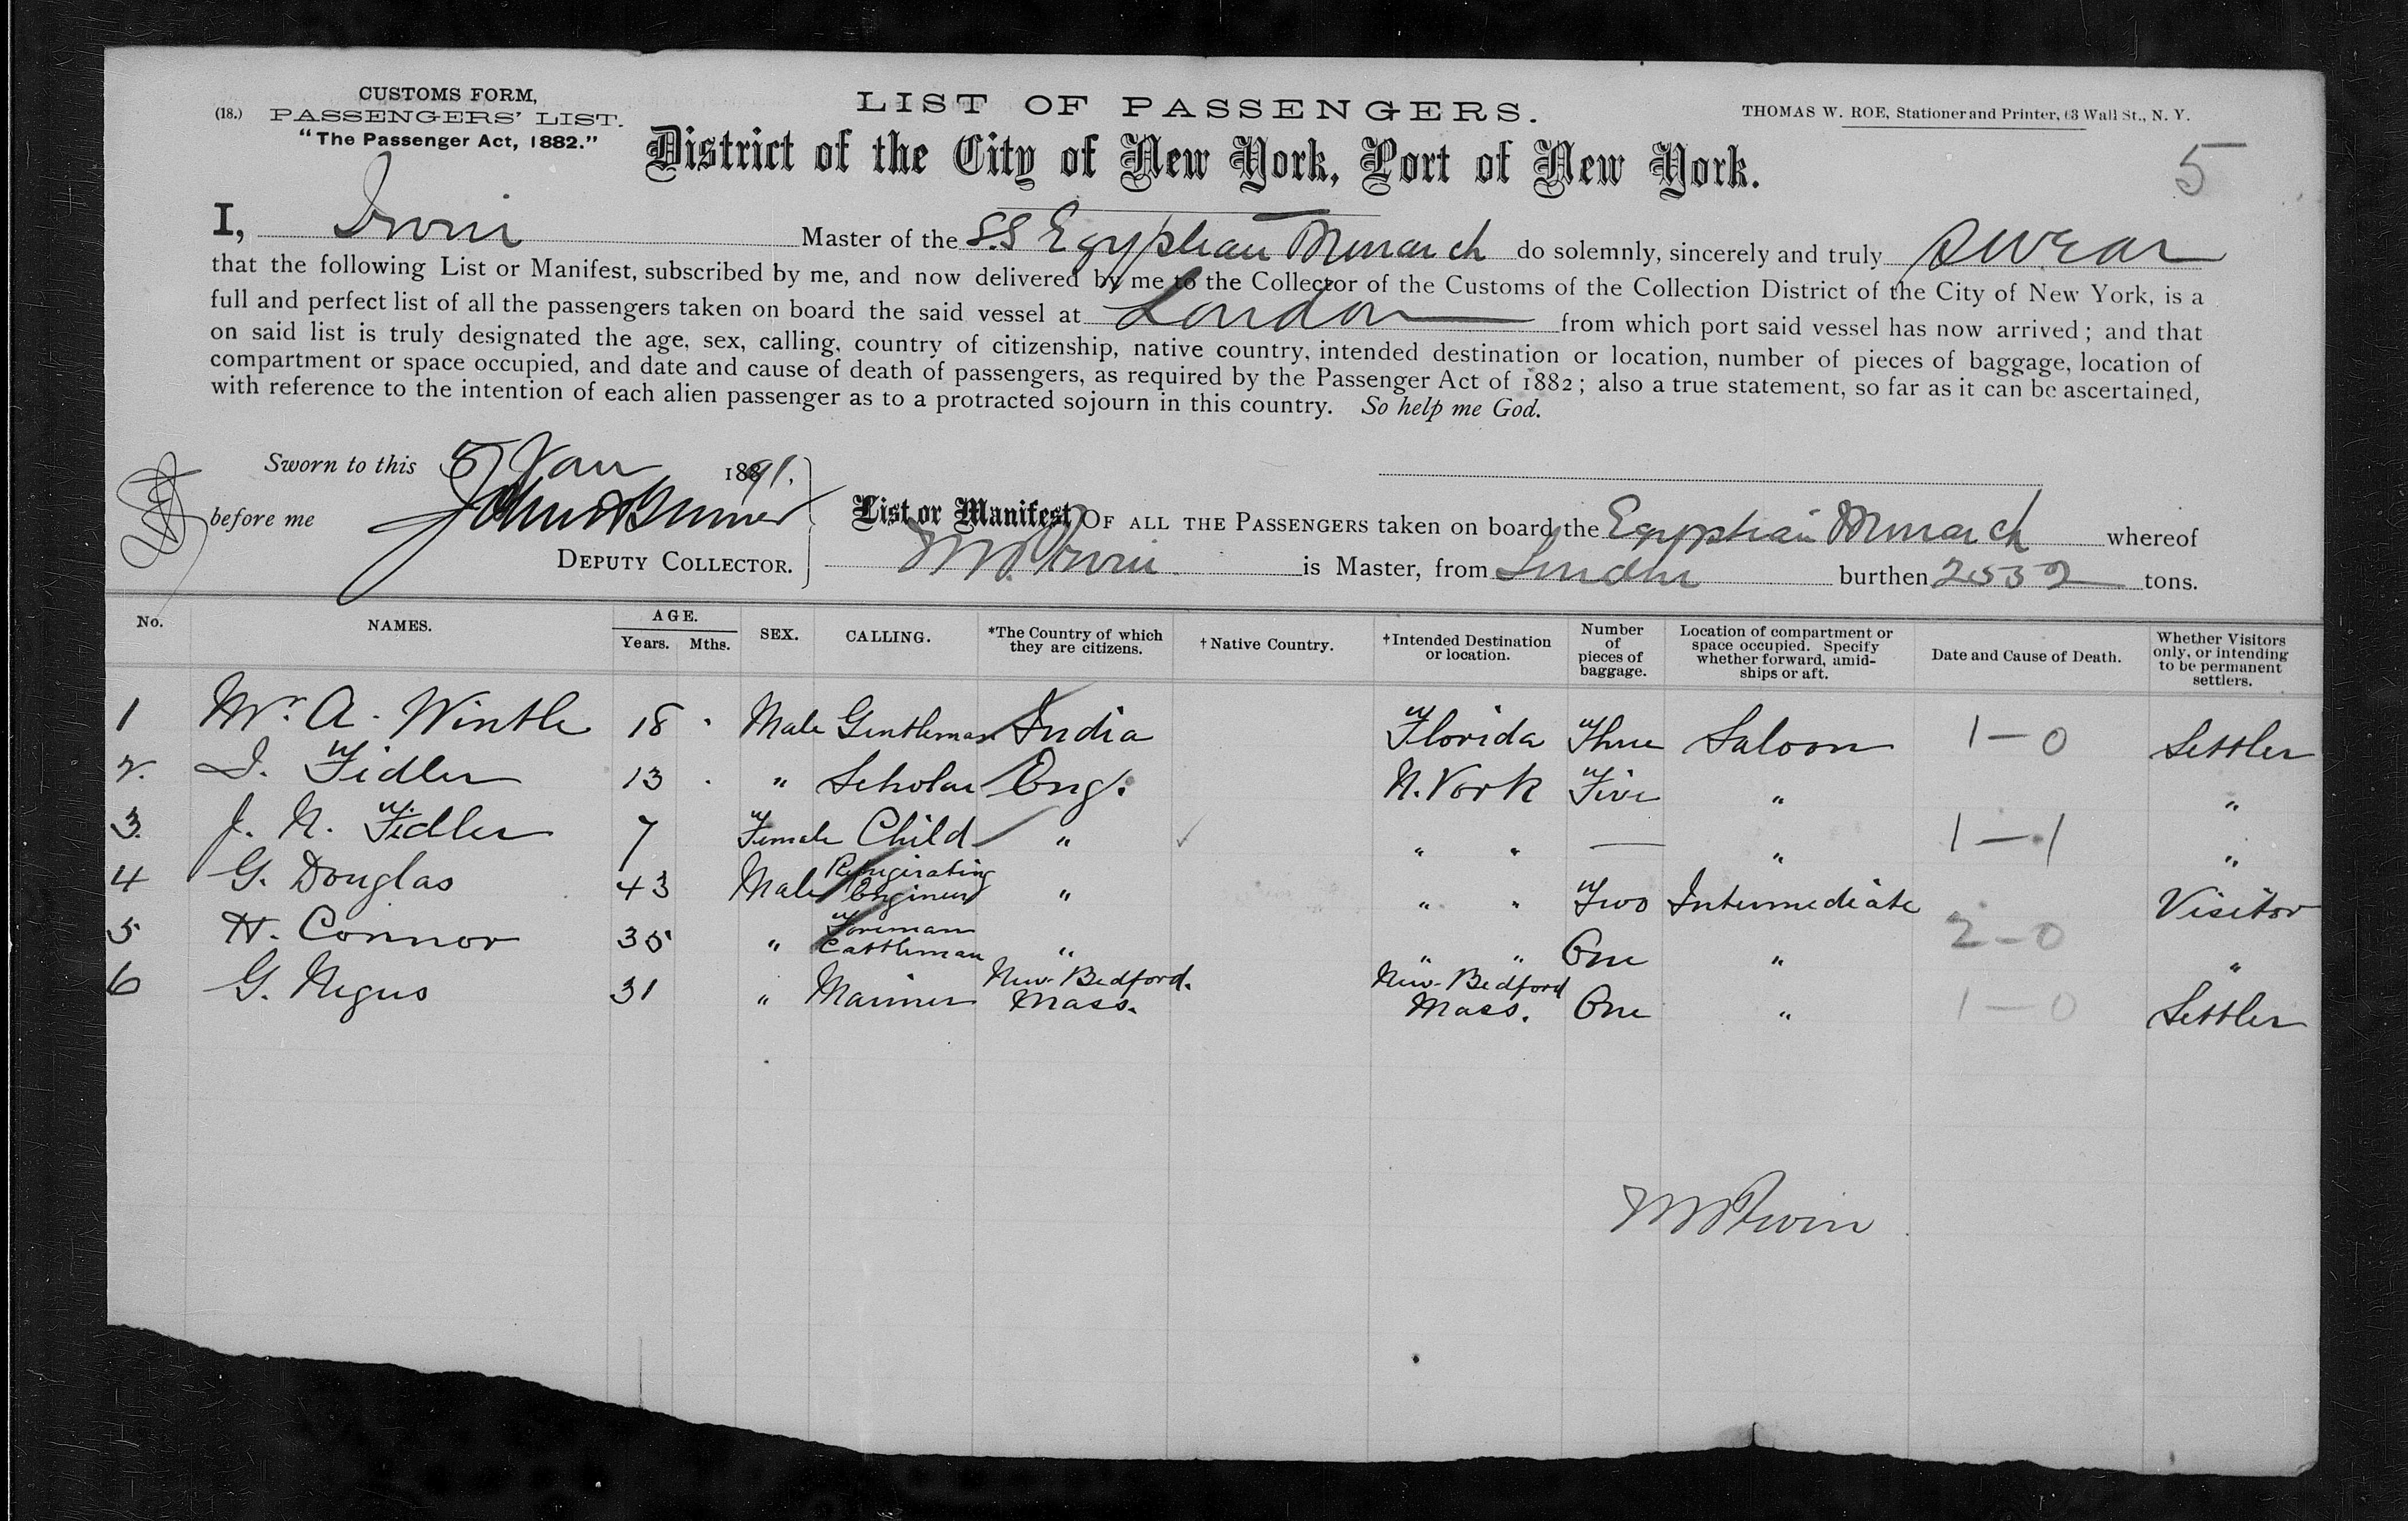 CUSTOMS FORM,
(18.) PASSENGERS' LIST.
"The Passenger Act, 1882."
LIST OF PASSENGERS.
THOMAS W. ROE, Stationer and Printer, 63 Wall St., N. Y.
District of the City of New York, Port of New York.
5
I, Irwin Master of the S.S Egyptian Monarch do solemnly, sincerely and truly swear
that the following List or Manifest, subscribed by me, and now delivered by me to the Collector of the Customs of the Collection District of the City of New York, is a
full and perfect list of all the passengers taken on board the said vessel at London from which port said vessel has now arrived; and that
on said list is truly designated the age, sex, calling, country of citizenship, native country, intended destination or location, number of pieces of baggage, location of
compartment or space occupied, and date and cause of death of passengers, as required by the Passenger Act of 1882; also a true statement, so far as it can be ascertained,
with reference to the intention of each alien passenger as to a protracted sojourn in this country. So help me God.
Sworn to this 5 Jan 1891.
before me
DEPUTY COLLECTOR.
List or Manifest OF ALL THE PASSENGERS taken on board the Egyptian Monarch whereof
Irwin is Master, from London burthen 2532 tons.
No. NAMES. AGE. Years. Mths. SEX. CALLING. *The Country of which they are citizens. †Native Country. †Intended Destination or location. Number of pieces of baggage. Location of compartment or space occupied. Specify whether forward, amidships or aft. Date and Cause of Death. Whether Visitors only, or intending to be permanent settlers.
1 Mr. A. Wintle 18 Male Gentleman India Florida Three Saloon 1-0 Settler
2. I. Fidler 13 " Scholar Eng. N. York Five " "
3. J. N. Fidler 7 Female Child " " " — " 1-1 "
4 G. Douglas 43 Male Refrigerating Engineer " " " Two Intermediate Visitor
5 H. Connor 35 " Foreman Cattleman " " " One " 2-0 "
6 G. Negus 31 " Mariner New-Bedford. Mass. New-Bedford Mass. One " 1-0 Settler
Irwin